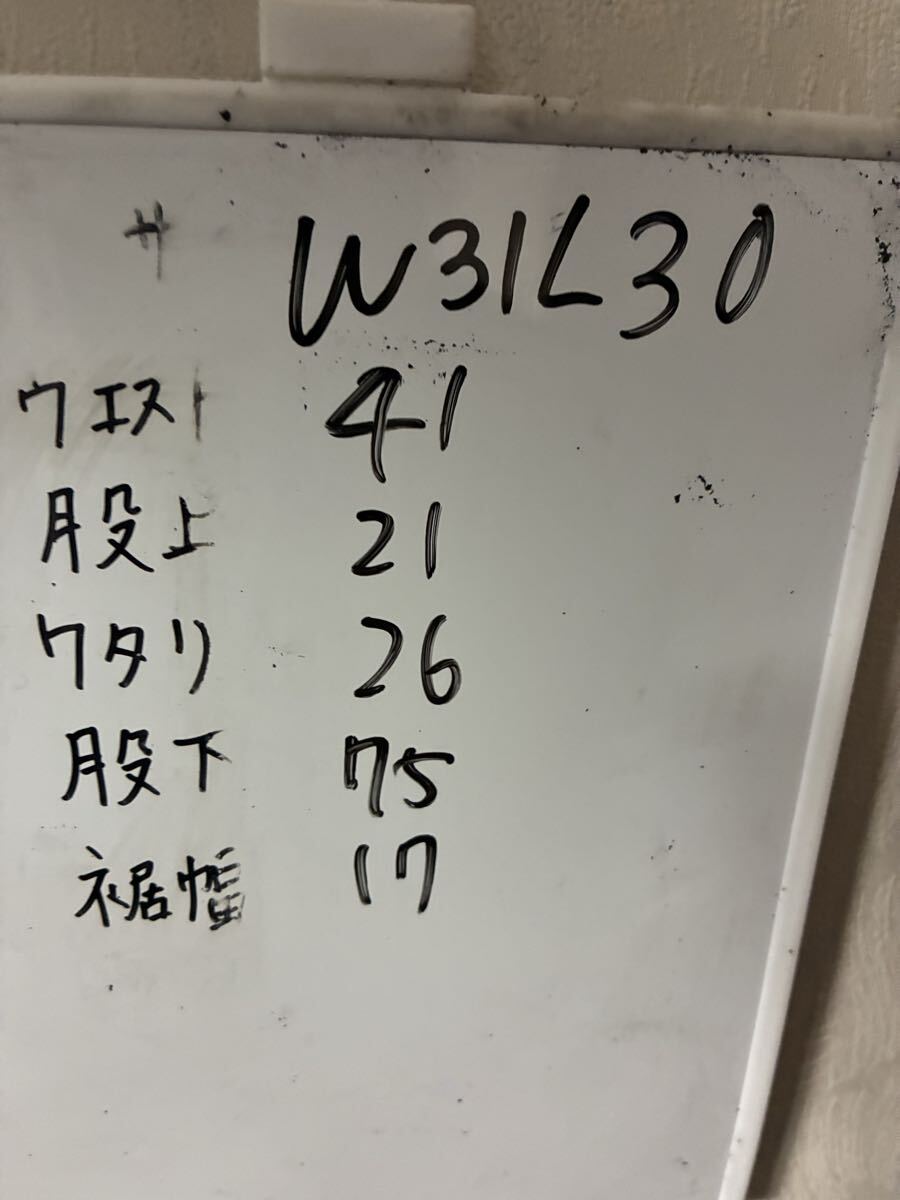 サ W31L30
ウエスト 41
股上 21
ワタリ 26
股下 75
裾幅 17